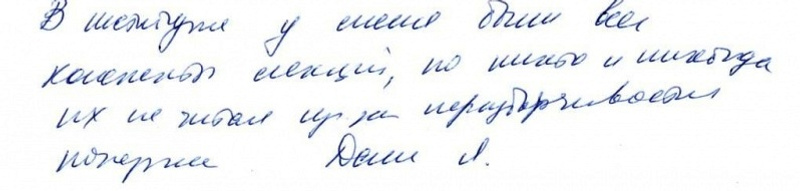 В институте у меня были все
конспекты лекций, но никто и никогда
их не читал из за неразборчивости
почерка Даши Л.